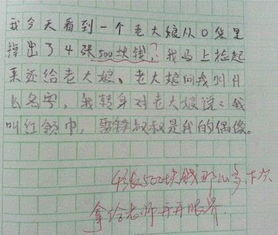 我今天看到一个老大娘从口袋里
掉出了4张500块钱,我马上捡起
来还给老大娘。老大娘问我叫什
么名字,我转身对老大娘说:我
叫红领巾,雷锋叔叔是我的偶像。
你长500块钱那么多,下次
拿给老师开开眼界